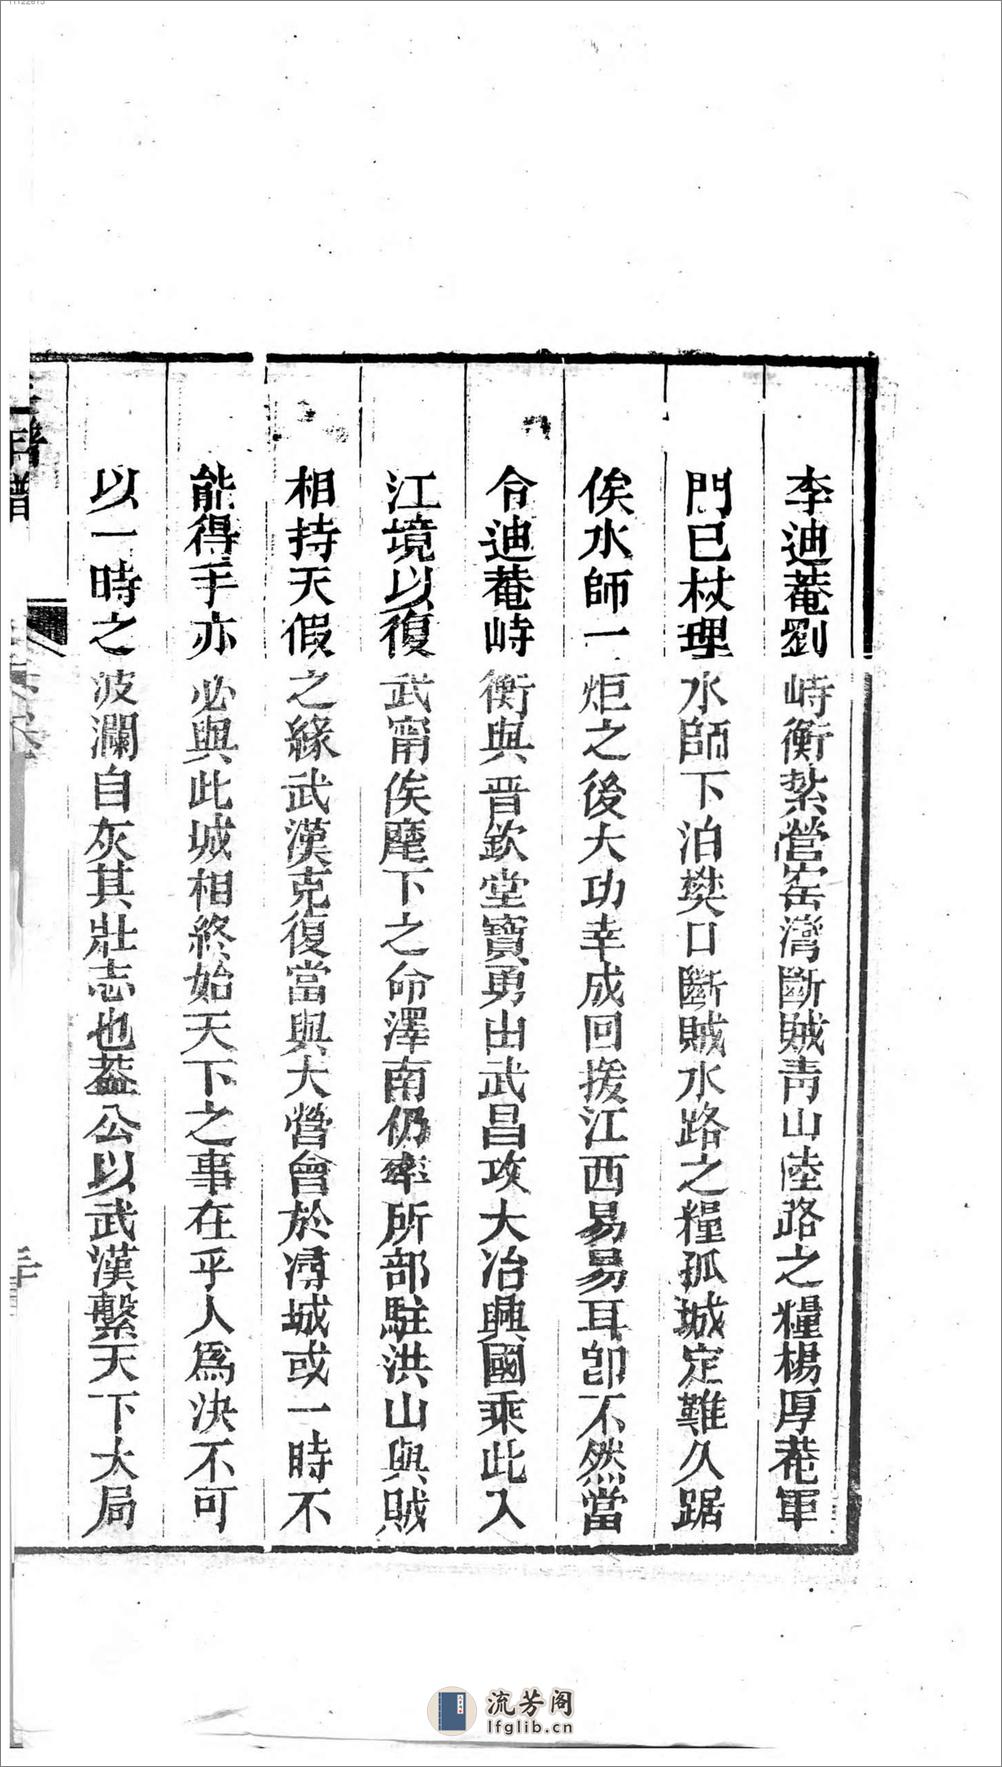 李迪菴劉峙衡紮營窑灣斷賊青山陸路之糧楊厚菴軍
門已杖理水師下泊樊口斷賊水路之糧孤城定難久踞
俟水師一炬之後大功幸成回援江西易易耳卽不然當
令迪菴峙衡與晋欽堂寶勇由武昌攻大冶興國乘此入
江境以復武甯俟麾下之命澤南仍率所部駐洪山與賊
相持天假之緣武漢克復當與大營會於潯城或一時不
能得手亦必與此城相終始天下之事在乎人爲決不可
以一時之波瀾自灰其壯志也葢公以武漢繫天下大局
年譜
流芳阁
lfglib.cn